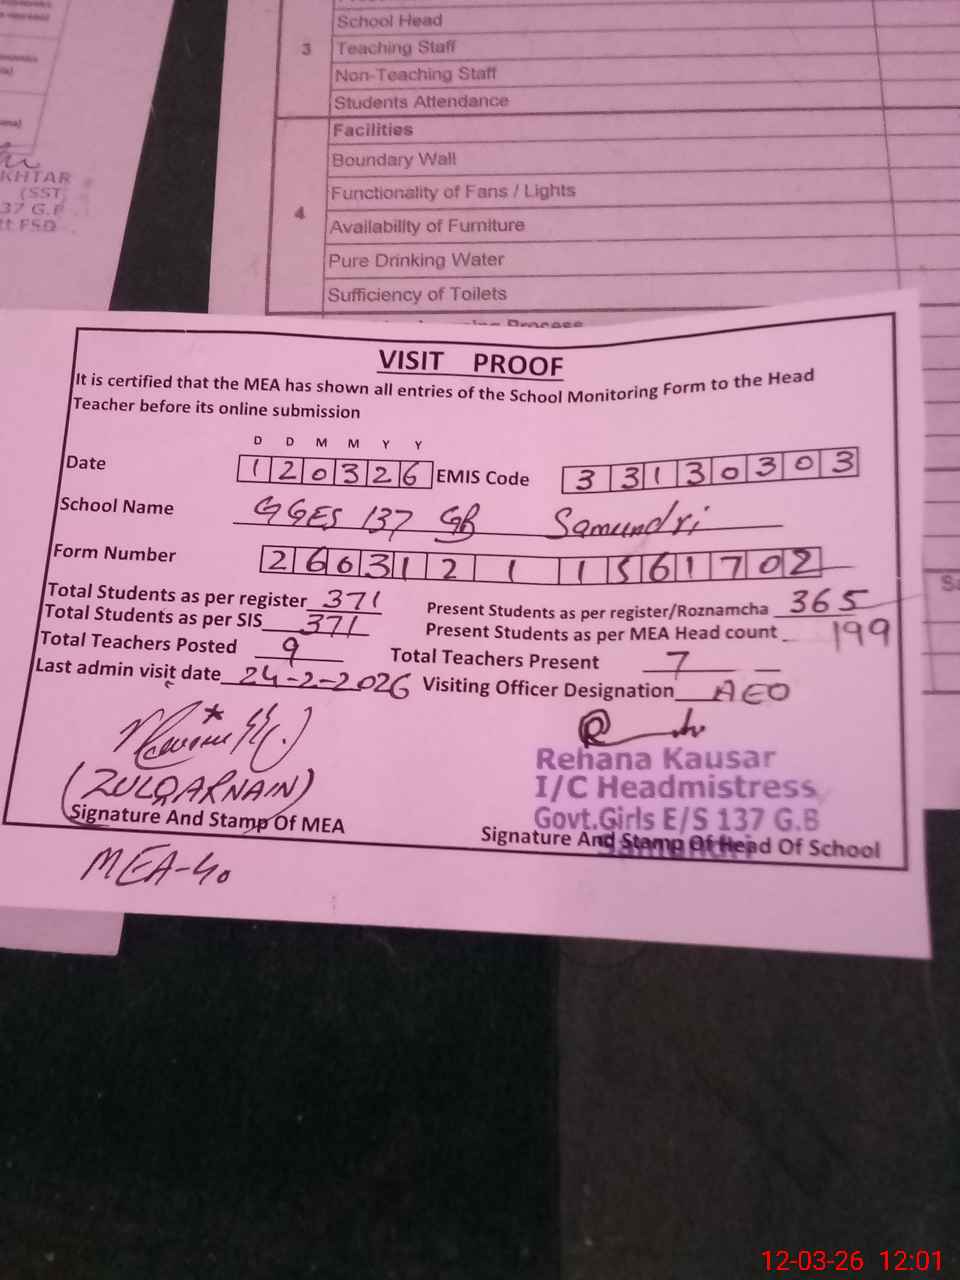 School Head
3 Teaching Staff
Non-Teaching Staff
Students Attendance
Facilities
Boundary Wall
4 Functionality of Fans / Lights
Availability of Furniture
Pure Drinking Water
Sufficiency of Toilets
Process
KHTAR
(SST)
37 G.B
tt FSD
VISIT PROOF
It is certified that the MEA has shown all entries of the School Monitoring Form to the Head
Teacher before its online submission
D D M M Y Y
Date 120326 EMIS Code 33130303
School Name GGES 137 GB Samundri
Form Number 26031211561702
Total Students as per register 371 Present Students as per register/Roznamcha 365
Total Students as per SIS 371 Present Students as per MEA Head count 199
Total Teachers Posted 9 Total Teachers Present 7
Last admin visit date 24-2-2026 Visiting Officer Designation AEO
(ZULQARNAIN)
Signature And Stamp Of MEA
MEA-40
Rehana Kausar
I/C Headmistress
Govt.Girls E/S 137 G.B
Samundri
Signature And Stamp Of Head Of School
12-03-26 12:01